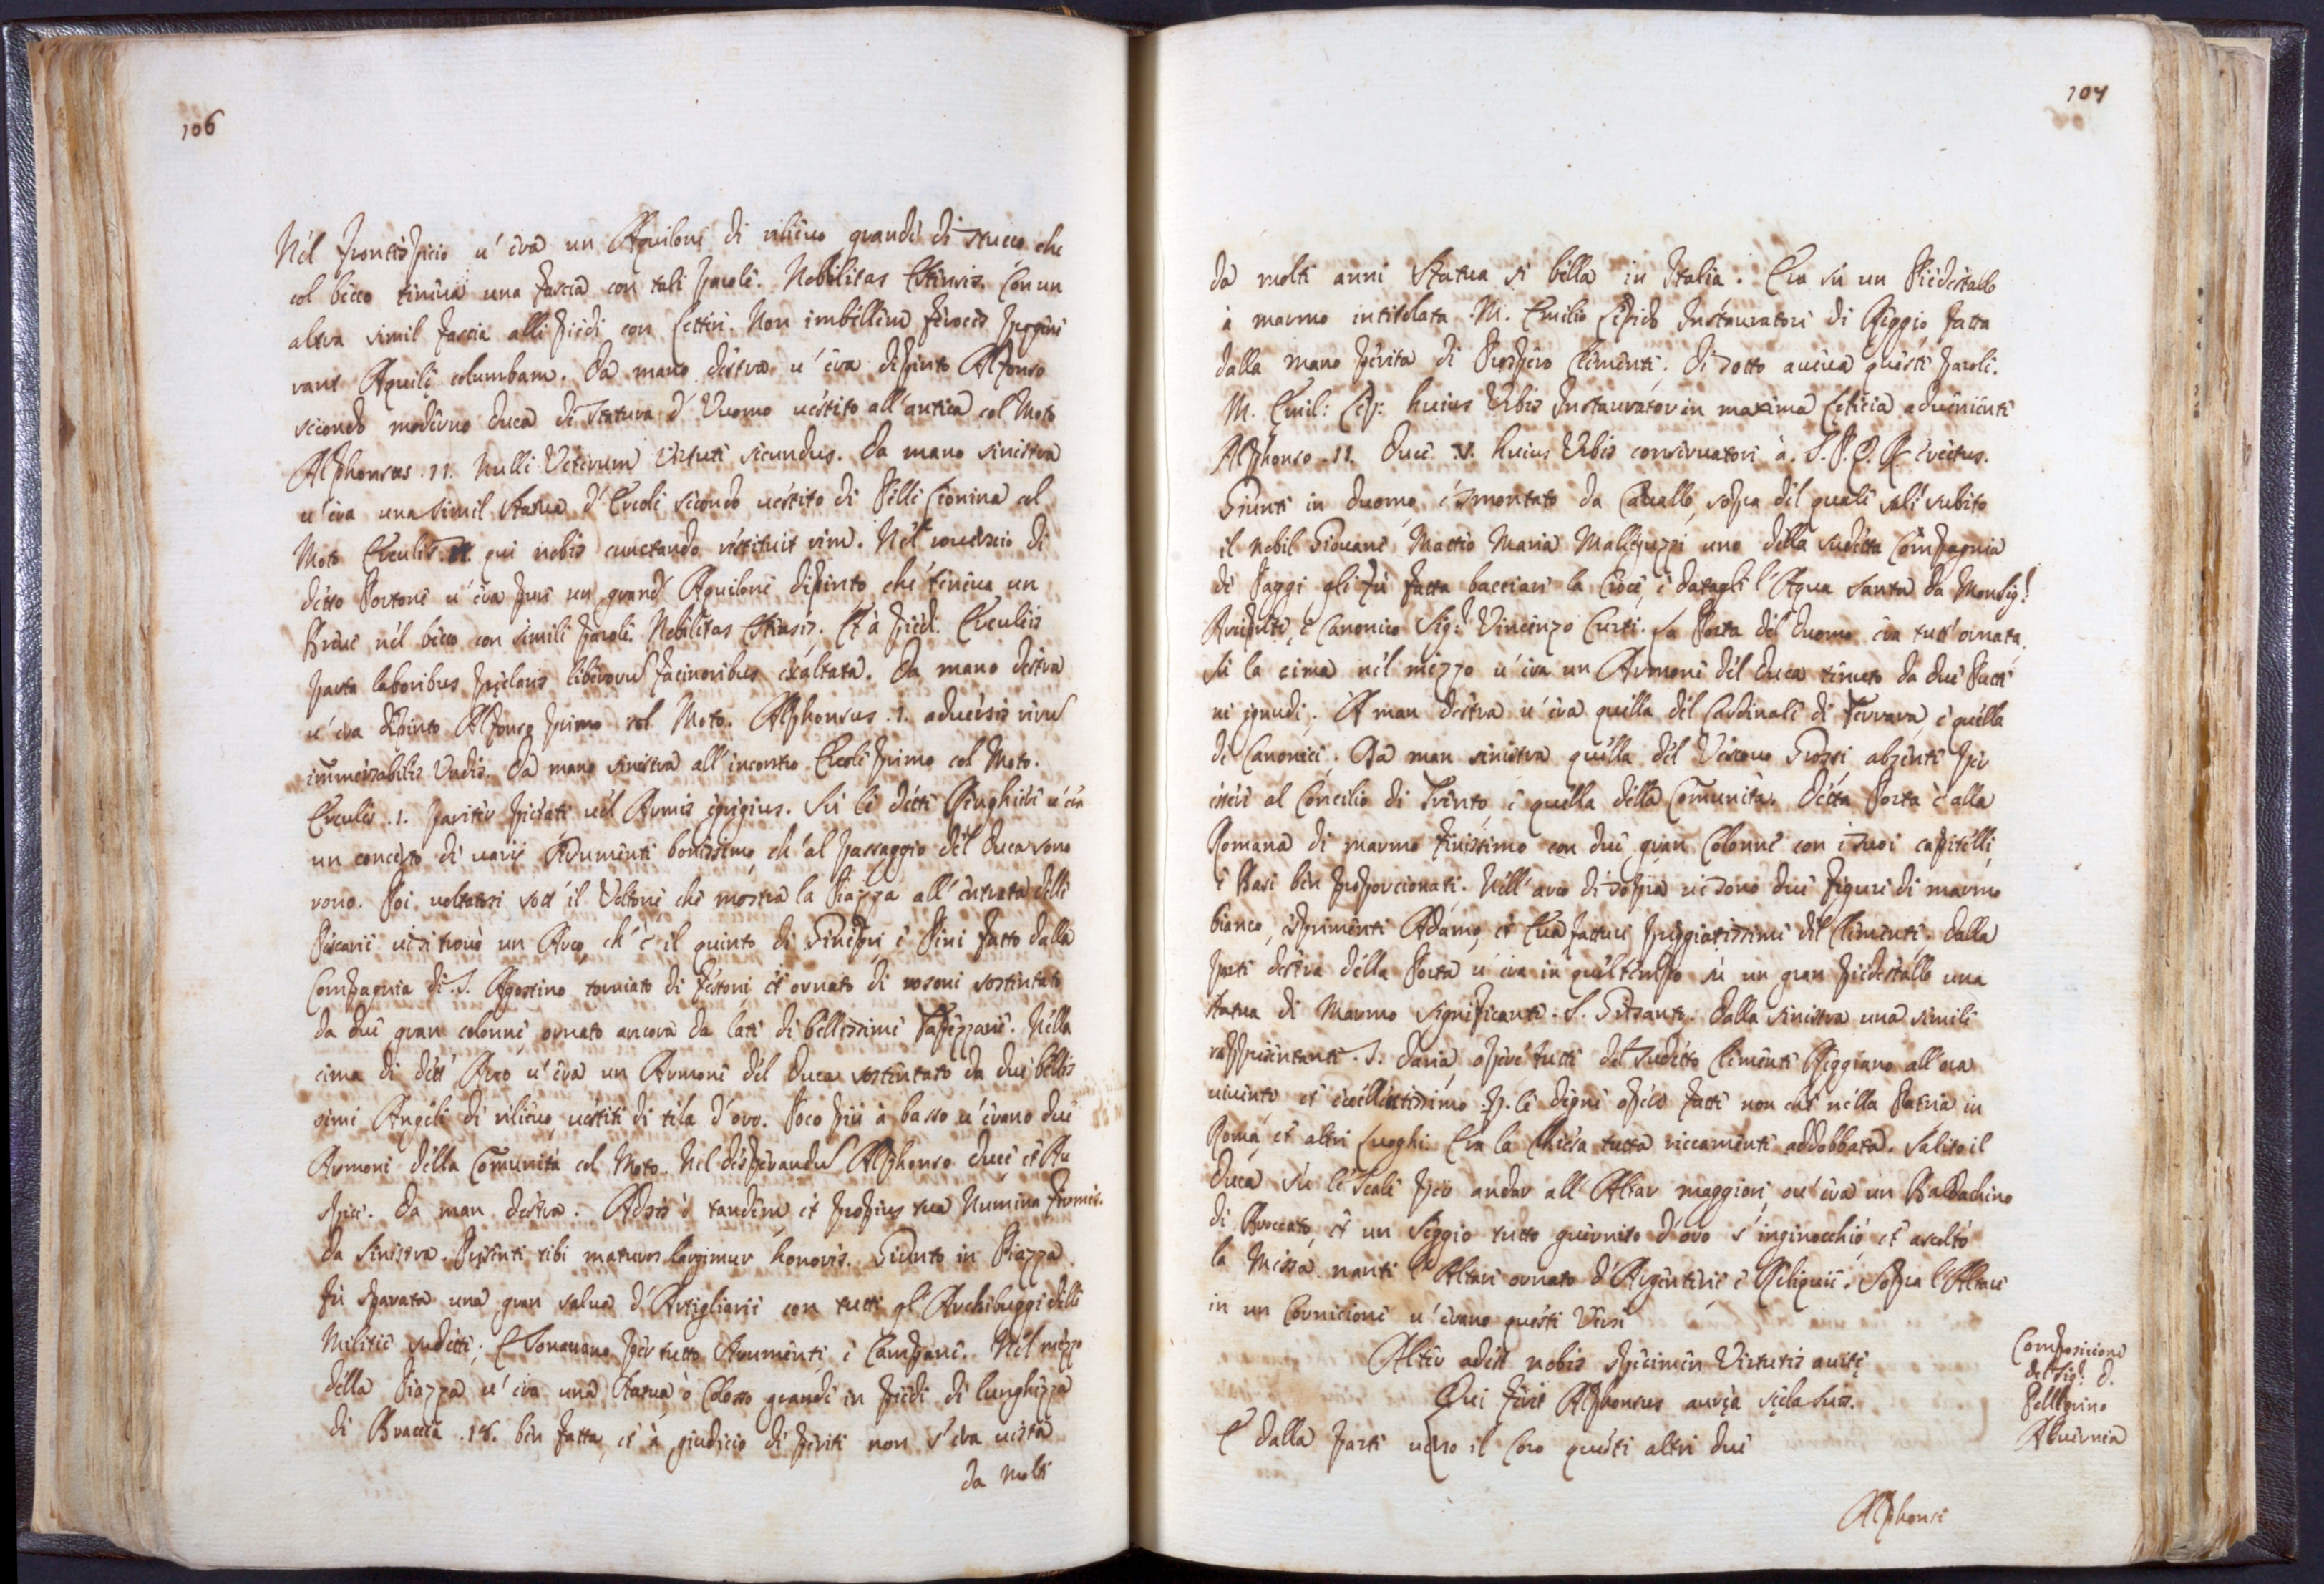 106
Nel frontispicio v'era un Aquilone di rilievo grande di stucco che
col becco teneva una fascia con tali parole. Nobilitas Estensis. Con un
altra simil fascia alli piedi con lettere. Non imbellem feroces progene
rant Aquilę columbam. Da mano destra v'era dipinto Alfonso
secondo moderno Duca di statura d'Vuomo vestito all'antica col Moto
Alphonsus .11. Nulli Veterum virtute secundus. Da mano sinistra
v'era una simil statua d'Ercole secondo vestito di Pelle Leonina col
Moto Erculis .II. qui nobis cunctando restituit rem. Nel roverscio di
detto Portone v'era pure un grand'Aquilone dipinto, che teneva un
Breve nel becco con simili parole. Nobilitas Estensis. Et à piedi. Erculeis
parta laboribus pręclaris liberorum facinoribus exaltata. Da mano destra
v'era dipinto Alfonso primo col Moto. Alphonsus .1. adversis rerum
immersabilis Undis. Da mano sinistra all'incontro Ercole primo col Moto.
Erculis .1. pariter pietate vel Armis egregius. Sù le dette Ringhiere v'era
un concerto di varij strumenti bonissimo, ch'al passaggio del Duca sono
rono. Poi voltatosi sott'il Voltone che mostra la Piazza all'entrata delle
Pescarie vi si trovò un Arco, ch'è il quinto di Ginepri e Pini fatto dalla
Compagnia di .S. Agostino torniato di festoni et ornato di rosoni sostentato
da due gran colonne, ornato ancora da lati di bellissime Tapezzarie. Nella
cima di dett'Arco v'era un Armone del Duca sostentato da due bellis
simi Angeli di rilievo, vestiti di tela d'oro. Poco più à basso v'erano due
Armoni della Comunità col Moto. Nil desperandum Alphonso Duce et Au
spice. Da man destra. Adsis ò tandem, et propius tua Numina firmes.
Da sinistra. Pręsenti tibi maturos largimur honores. Giunto in Piazza
fù sparata una gran salva d'Artigliarie con tutti gl'Archibuggi delle
Militie sudette; E sonavano per tutto strumenti e Campane. Nel mezzo
della Piazza v'era una statua ò Colosso grande in piedi di lunghezza
di Braccia .18. ben fatta, et à giudicio di periti non s'era vista
da molti
107
da molti anni statua si bella in Italia. Era sù un Piedestallo
à marmo intitolata .M. Emilio Lepido Instauratore di Reggio fatta
dalla mano perita di Prospero Clementi. Di sotto aveva queste parole.
M. Emil: Lep: huius Urbis Instaurator in maxima lętitia advenienti
Alphonso .11. Duci .V. huius Urbis conservatori à .S.P.Q.R. erectus.
Giunti in Duomo, e smontato da Cavallo, sopra del quale salì subito
il nobil Giovane Mattio Maria Maleguzzi uno della sudetta Compagnia
de Paggi gli fù fatta bacciare la Croce, e datagli l'Aqua santa da Monsig.r
Arciprete, è Canonico Sig.r Vincenzo Curti. La Porta del Duomo era tutt'ornata.
Sù la cima nel mezzo v'era un Armone del Duca tenuto da due Putti
ni ignudi. A man destra v'era quella del Cardinale di Ferrara, e quella
de Canonici. Da man sinistra quella del Vescovo Grossi, absente per
essere al Concilio di Trento, e quella della Comunità. Detta Porta è alla
Romana di marmo finissimo con due gran Colonne con i suoi capitelli,
e Basi ben proporcionate. Nell'arco di sopra vi sono due figure di marmo
bianco, esprimenti Adamo, et Eva fatture preggiatissime del Clementi. Dalla
parte destra della Porta v'era in quel tempo sù un gran piedestallo una
statua di Marmo significante .S. Grisanto. Dalla sinistra una simile
rappresentante .S. Daria, opere tutte del sudetto Clementi Reggiano all'ora
vivente et eccellentissimo p. le degne opere fatte non che nella Patria in
Roma, et altri luoghi. Era la Chiesa tutta riccamente addobbata. Salito il
Duca sù le scale per andar all'Altar maggiore, ov'era un Baldachino
di Broccato, et un Seggio tutto guernito d'oro s'inginocchiò, et ascoltò
la Messa nanti l'Altare ornato d'Argenterie e Reliquie. Sopra l'Altare
in un Cornicione v'erano questi Versi
Alter adest nobis specimen Virtutis avitę
Qui feret Alphonsus aurea sęcla suis.
E dalla parte verso il Coro questi altri due
Composicione
del Sig.r D.
Pellegrino
Alvernia
Alphonsi